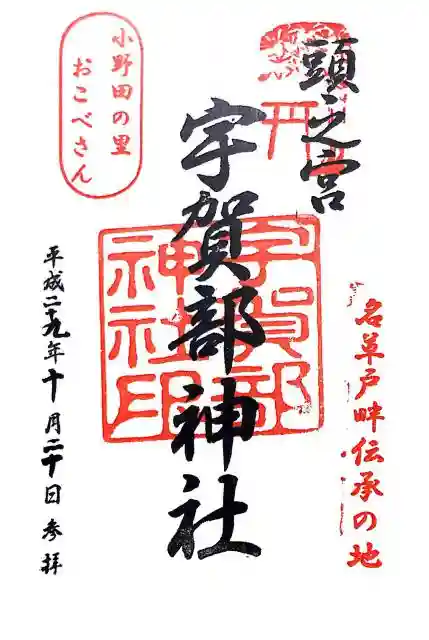 頭之宮
宇賀部神社
名草戸畔伝承の地
宇賀部
神社印
小野田の里
おこべさん
平成二十九年十月二十日参拝